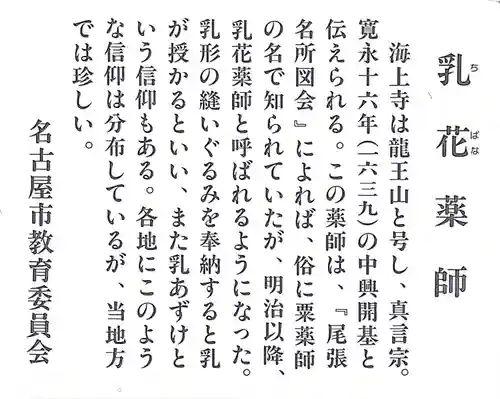 乳花薬師
ち
ばな
海上寺は龍王山と号し、真言宗。
寛永十六年(一六三九)の中興開基と
伝えられる。この薬師は、『尾張
名所図会』によれば、俗に粟薬師
の名で知られていたが、明治以降、
乳花薬師と呼ばれるようになった。
乳形の縫いぐるみを奉納すると乳
が授かるといい、また乳あずけと
いう信仰もある。各地にこのよう
な信仰は分布しているが、当地方
では珍しい。
名古屋市教育委員会